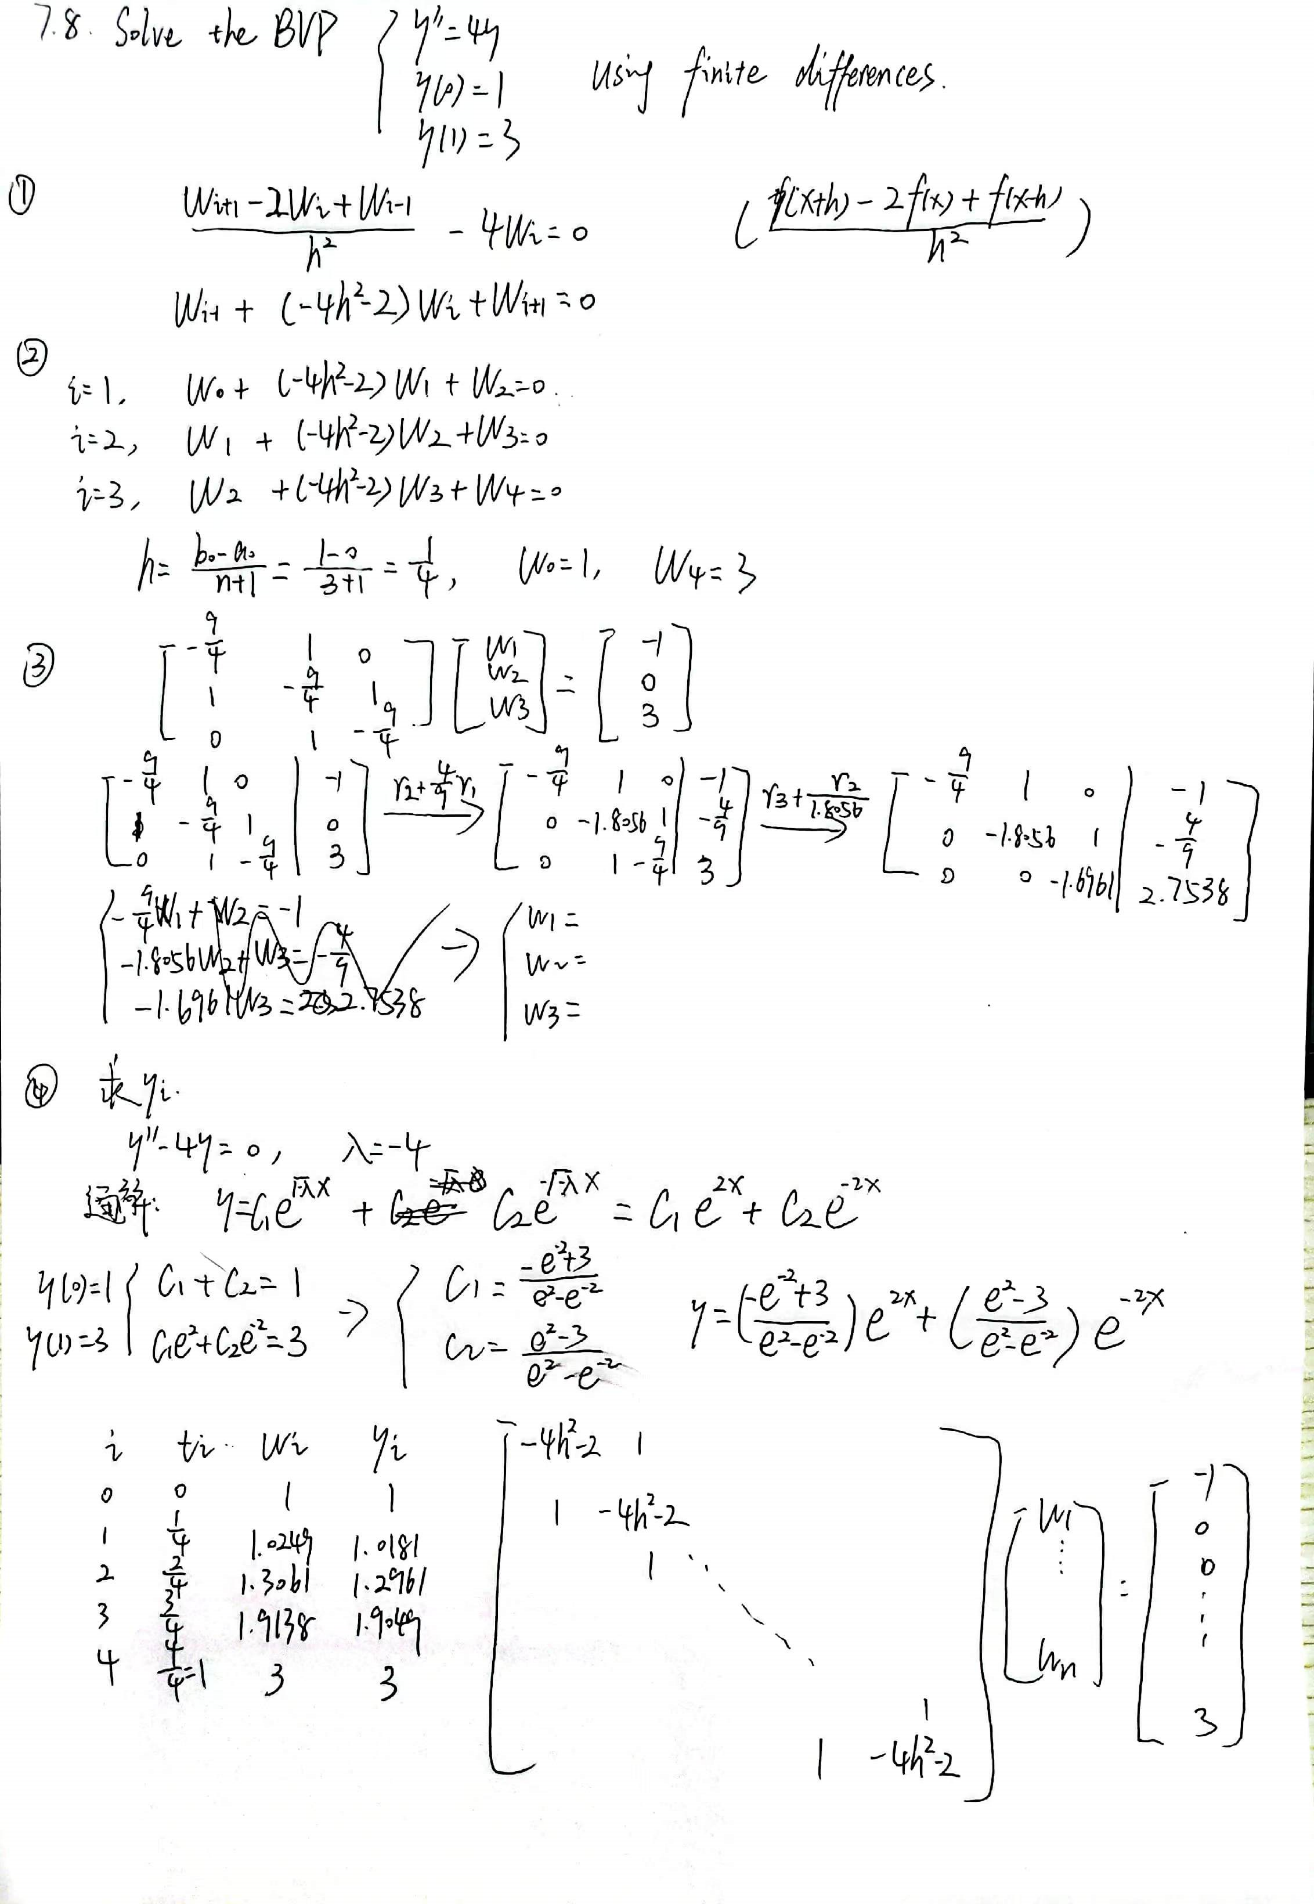 7.8. Solve the BVP { y''=4y
y(0)=1
y(1)=3
using finite differences.
① (W_{i+1}-2W_i+W_{i-1})/h² - 4W_i=0 ((f(x+h)-2f(x)+f(x-h))/h²)
W_{i-1} + (-4h²-2)W_i+W_{i+1}=0
②
i=1, W_0+ (-4h²-2)W_1+W_2=0.
i=2, W_1 + (-4h²-2)W_2+W_3=0
i=3, W_2 +(-4h²-2)W_3+W_4=0
h= (b_0-a_0)/(n+1) = (1-0)/(3+1) = 1/4, W_0=1, W_4=3
③ [-9/4 1 0; 1 -9/4 1; 0 1 -9/4] [W_1; W_2; W_3] = [-1; 0; 3]
[-9/4 1 0 | -1; 1 -9/4 1 | 0; 0 1 -9/4 | 3] r_2+4/9 r_1 → [-9/4 1 0 | -1; 0 -1.8056 1 | -4/9; 0 1 -9/4 | 3] r_3+r_2/1.8056 → [-9/4 1 0 | -1; 0 -1.8056 1 | -4/9; 0 0 -1.6961 | 2.7538]
{ -9/4 W_1+W_2=-1 → { W_1=
-1.8056W_2+W_3=-4/9 W_2=
-1.6961W_3=2.7538 W_3=
④ 求y_i.
y''-4y=0, λ=-4
通解: y=C_1e^{√-λ x} + C_2e^{-√-λ x} = C_1e^{2x}+C_2e^{-2x}
y(0)=1 { C_1+C_2=1 → { C_1= (-e^{-2}+3)/(e²-e^{-2}) y=((-e^{-2}+3)/(e²-e^{-2}))e^{2x}+((e²-3)/(e²-e^{-2}))e^{-2x}
y(1)=3 C_1e²+C_2e^{-2}=3 C_2= (e²-3)/(e²-e^{-2})
i t_i W_i y_i
0 0 1 1
1 1/4 1.0249 1.0181
2 2/4 1.3061 1.2961
3 3/4 1.9138 1.9049
4 4/4=1 3 3
[-4h²-2 1
1 -4h²-2
1 ⋱
1
1 -4h²-2] [W_1 ⋮ W_n] = [-1 0 0 ⋮ 3]